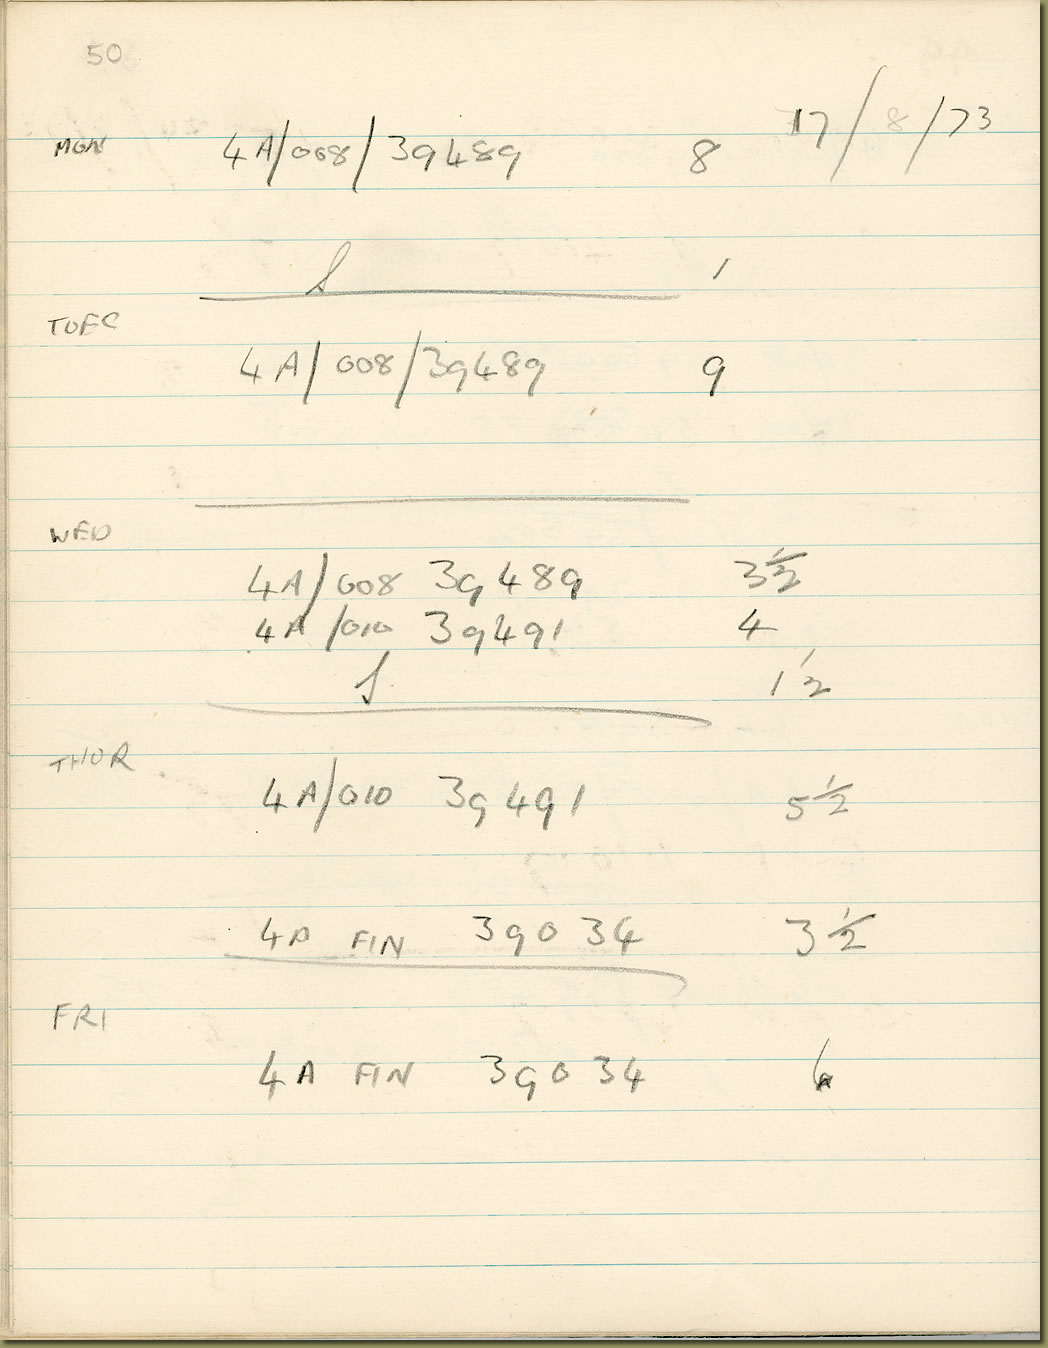 50
17/8/73
MON 4A/008/39489 8
S 1
TUES
4A/008/39489 9
WED
4A/008 39489 3½
4A/010 39491 4
S 1½
THUR
4A/010 39491 5½
4A FIN 39034 3½
FRI
4A FIN 39034 6